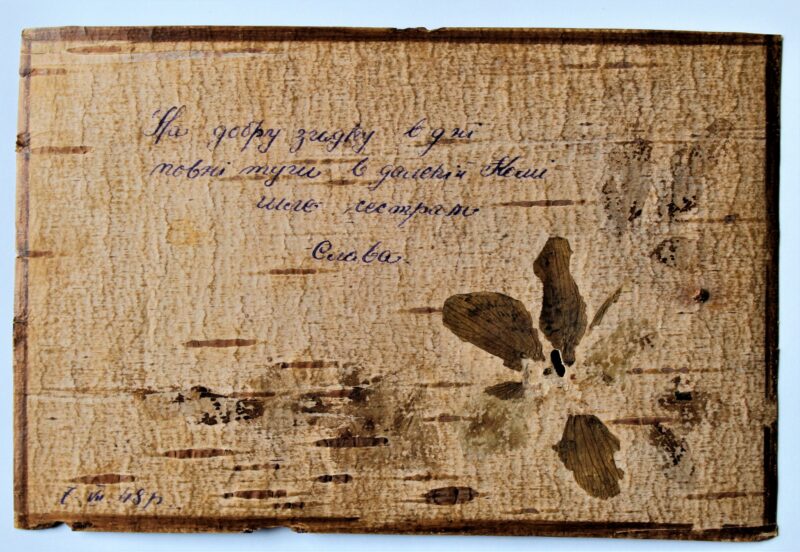 На добру згадку в дні
повні туги в далекій Комі
шле сестрам
Слава.
VII 48 р.